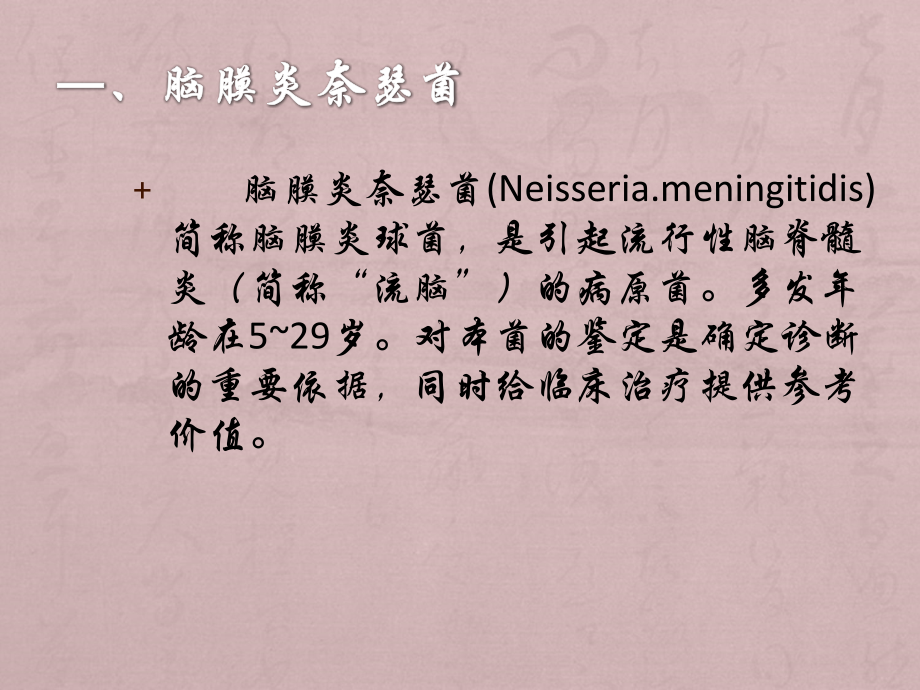 一、脑膜炎奈瑟菌
+ 脑膜炎奈瑟菌(Neisseria.meningitidis)
简称脑膜炎球菌，是引起流行性脑脊髓
炎（简称“流脑”）的病原菌。多发年
龄在5~29岁。对本菌的鉴定是确定诊断
的重要依据，同时给临床治疗提供参考
价值。